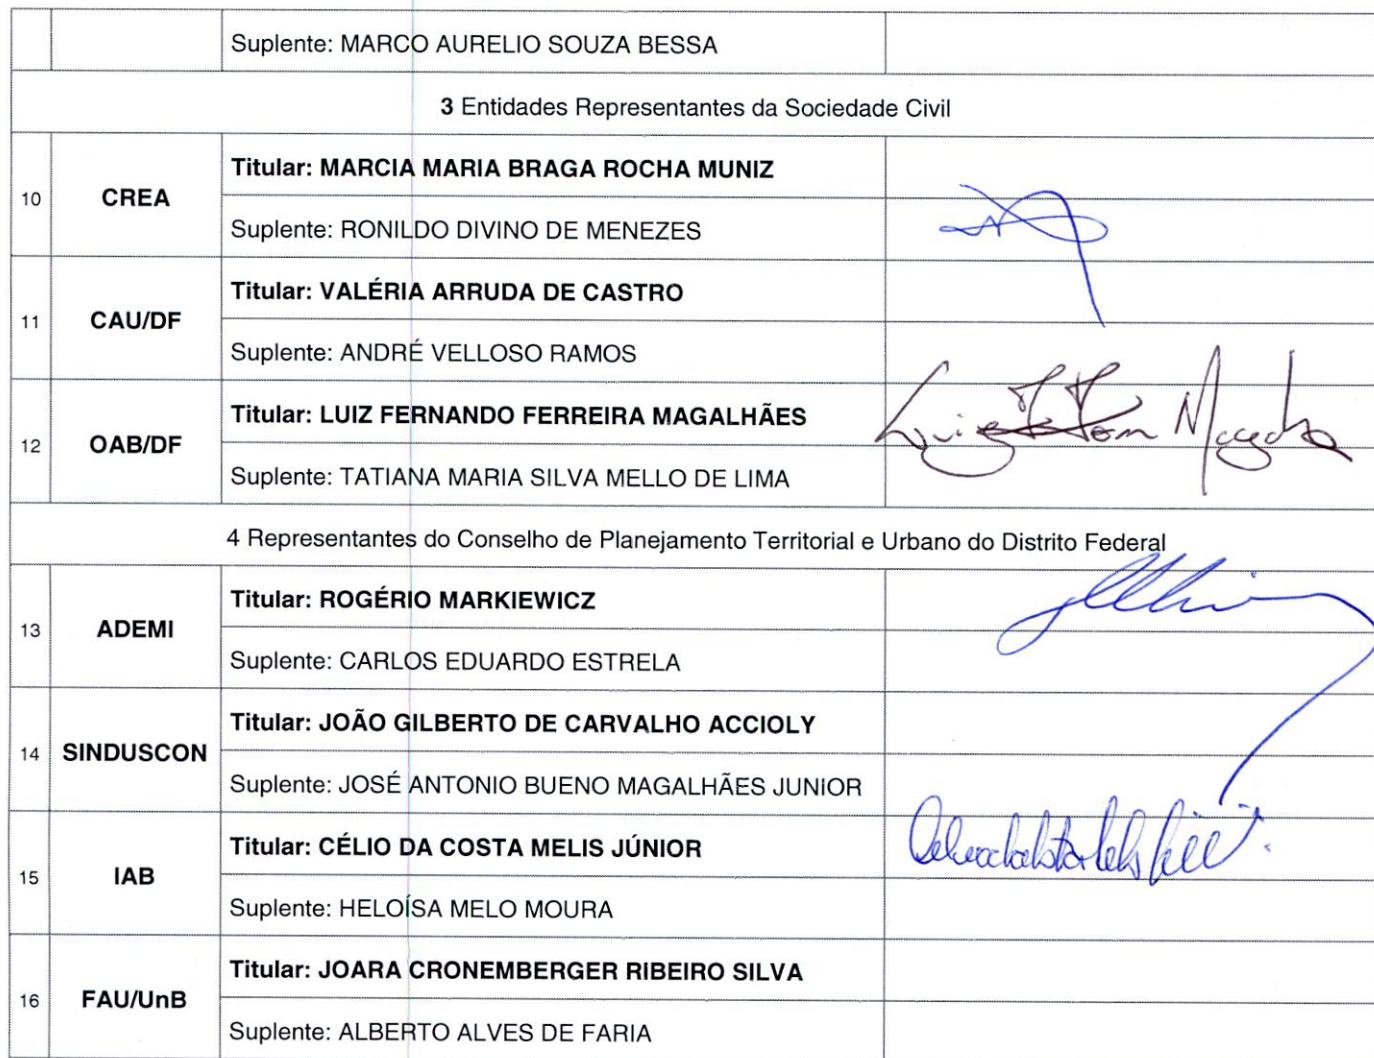 Suplente: MARCO AURELIO SOUZA BESSA
3 Entidades Representantes da Sociedade Civil
10 CREA
Titular: MARCIA MARIA BRAGA ROCHA MUNIZ
Suplente: RONILDO DIVINO DE MENEZES
11 CAU/DF
Titular: VALÉRIA ARRUDA DE CASTRO
Suplente: ANDRÉ VELLOSO RAMOS
12 OAB/DF
Titular: LUIZ FERNANDO FERREIRA MAGALHÃES
Luiz
Suplente: TATIANA MARIA SILVA MELLO DE LIMA
4 Representantes do Conselho de Planejamento Territorial e Urbano do Distrito Federal
13 ADEMI
Titular: ROGÉRIO MARKIEWICZ
Suplente: CARLOS EDUARDO ESTRELA
14 SINDUSCON
Titular: JOÃO GILBERTO DE CARVALHO ACCIOLY
Suplente: JOSÉ ANTONIO BUENO MAGALHÃES JUNIOR
15 IAB
Titular: CÉLIO DA COSTA MELIS JÚNIOR
Suplente: HELOÍSA MELO MOURA
16 FAU/UnB
Titular: JOARA CRONEMBERGER RIBEIRO SILVA
Suplente: ALBERTO ALVES DE FARIA